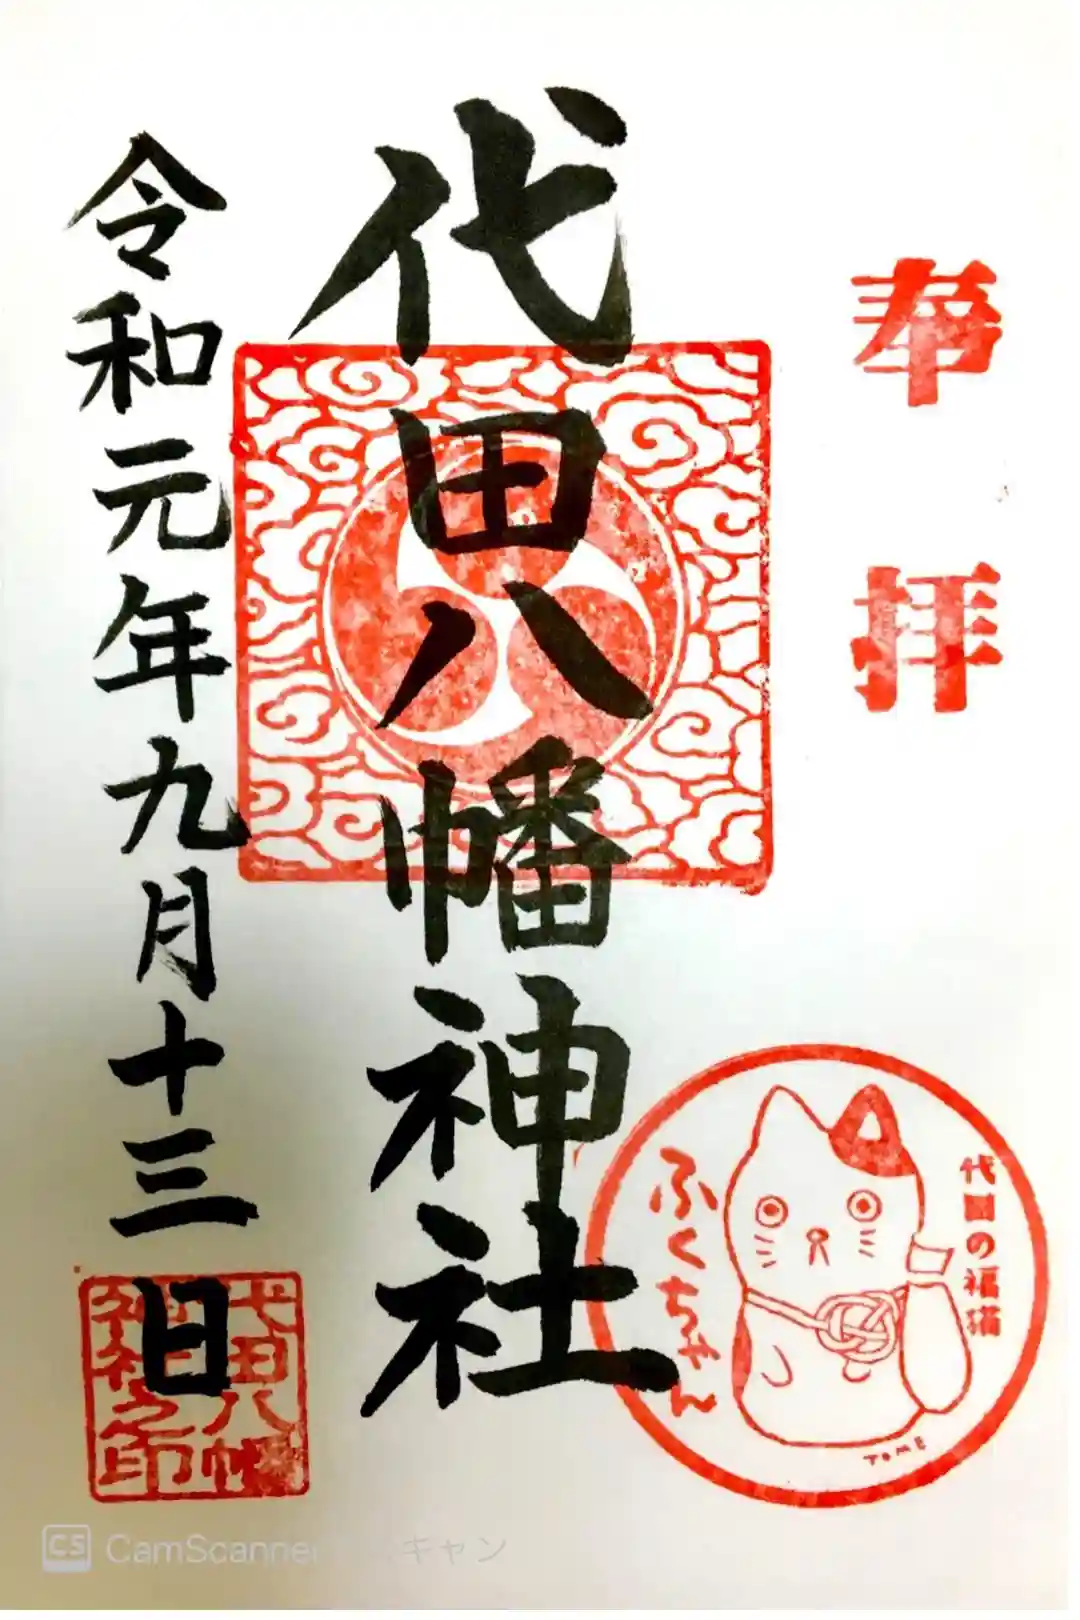 奉拝
代田八幡神社
令和元年九月十三日
代田八幡
神社之印
代田の福猫
ふくちゃん
TOME
CS CamScanner
キャン